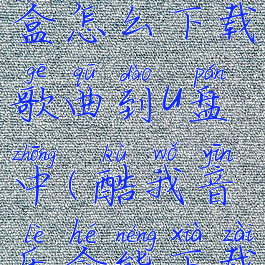 盒怎么下载
gē qǔ dào pán
歌曲到U盘
zhōng kù wǒ yīn
中(酷我音
lè hé néng xià zǎi
乐盒能下载